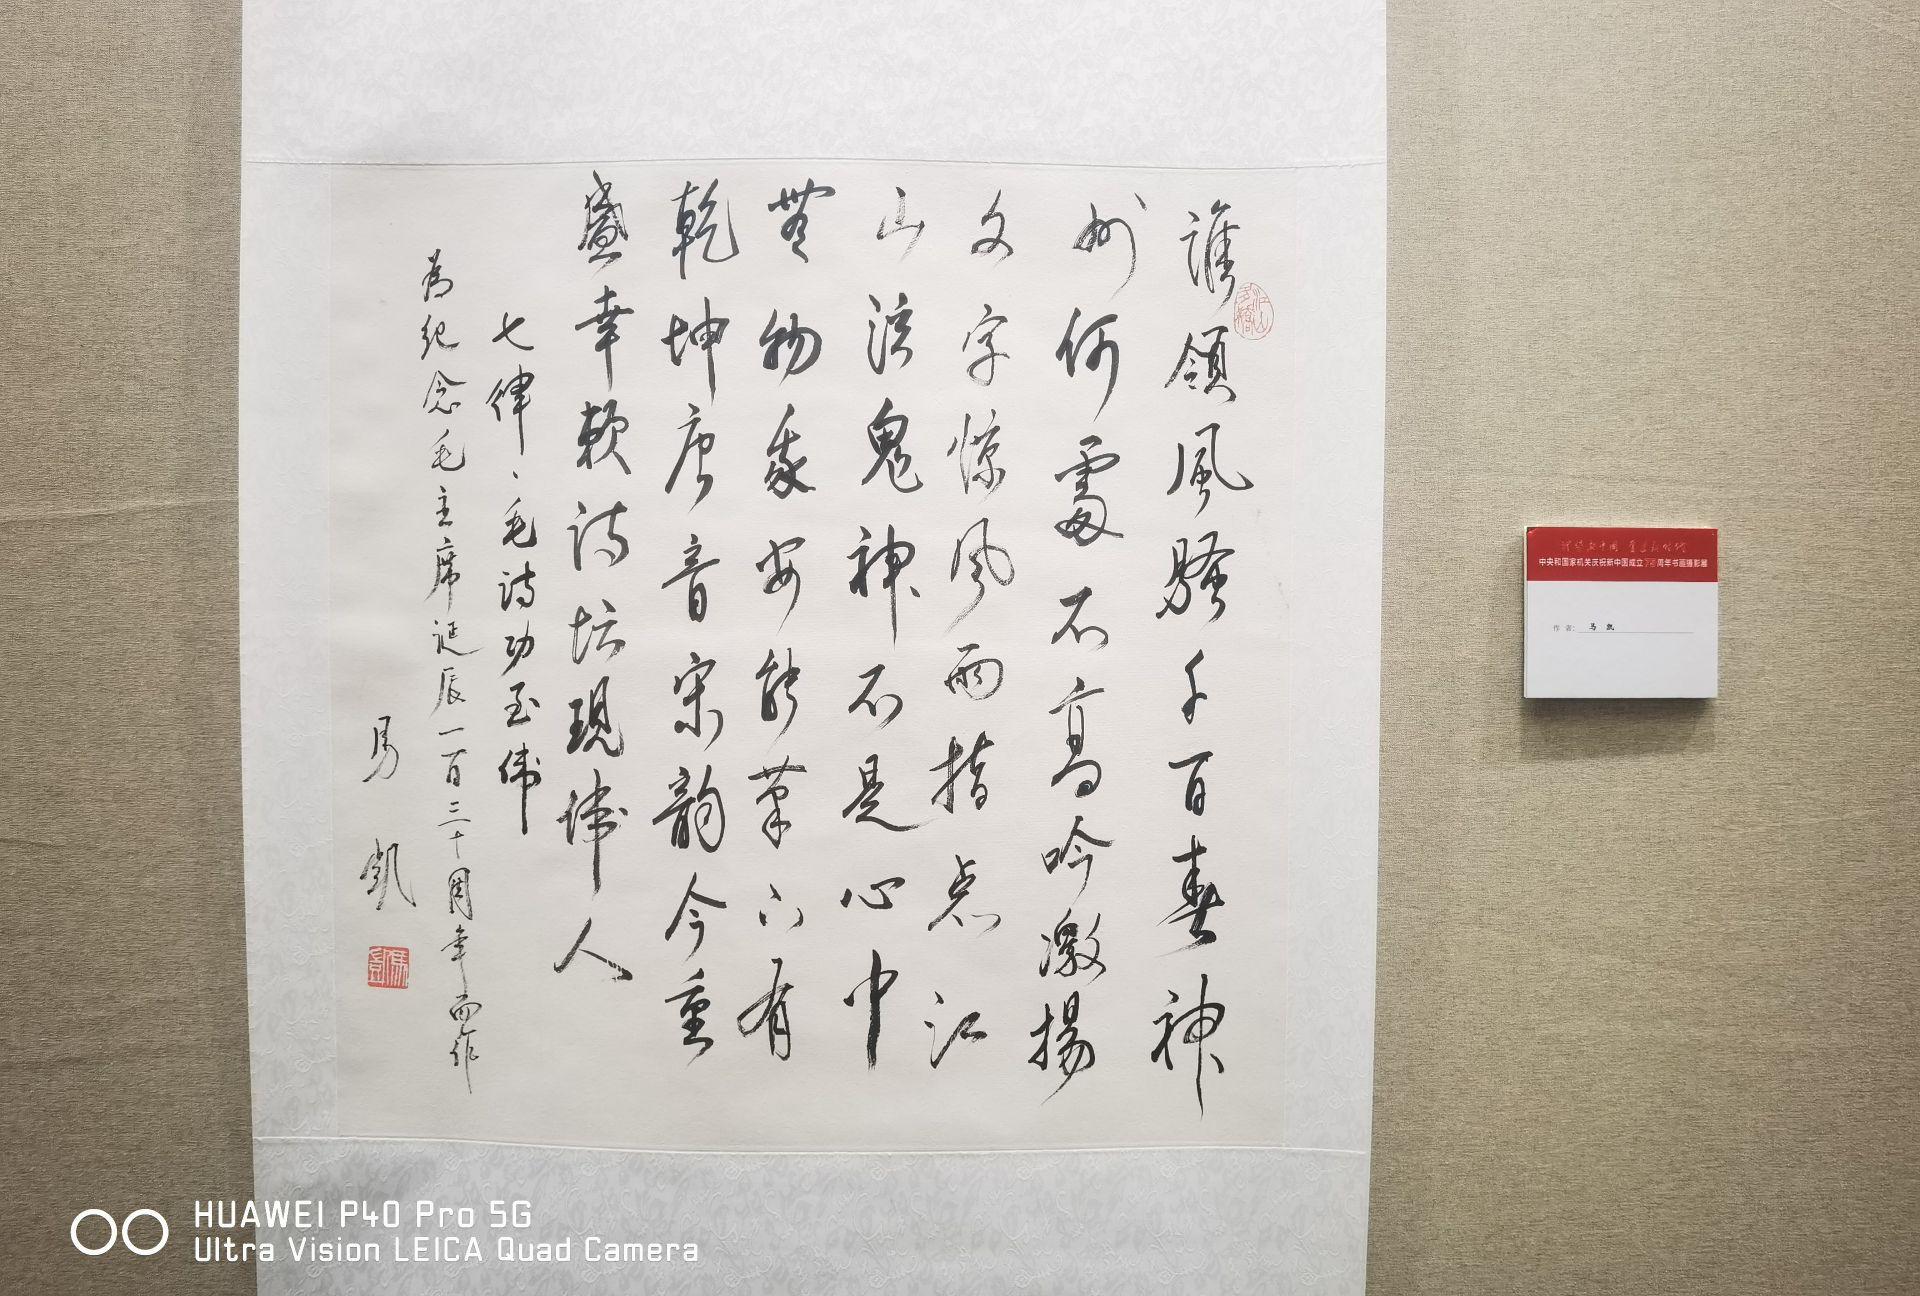 誰領風騷千百春神
州何處不高吟激揚
文字惊风雨指点江
山泣鬼神不是心中
無物象安能筆下有
乾坤唐音宋韵今重
盛幸賴诗坛現偉人
七律、毛诗功至偉
为纪念毛主席诞辰一百三十周年而作
馬凱
江山多嬌
中央和国家机关庆祝新中国成立75周年书画摄影展
作者: 马凯
HUAWEI P40 Pro 5G
Ultra Vision LEICA Quad Camera